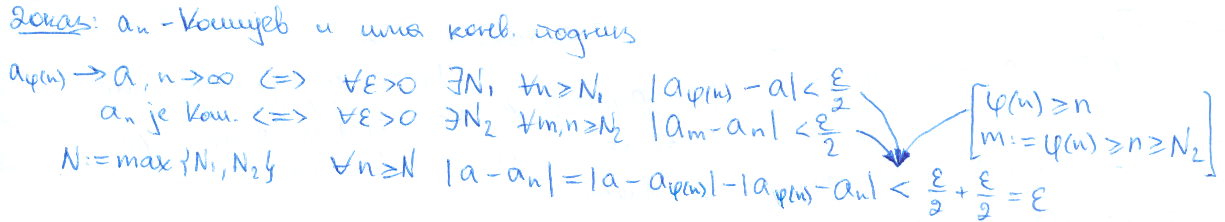 Доказ: aₙ - Кошијев и има конв. подниз
a_φ(n) → a, n→∞ <=> ∀ε>0 ∃N₁ ∀n≥N₁ |a_φ(n) - a| < ε/2
aₙ је Кош. <=> ∀ε>0 ∃N₂ ∀m,n≥N₂ |aₘ - aₙ| < ε/2
[φ(n) ≥ n
m := φ(n) ≥ n ≥ N₂]
N := max{N₁, N₂} ∀n≥N |a - aₙ| = |a - a_φ(n)| - |a_φ(n) - aₙ| < ε/2 + ε/2 = ε